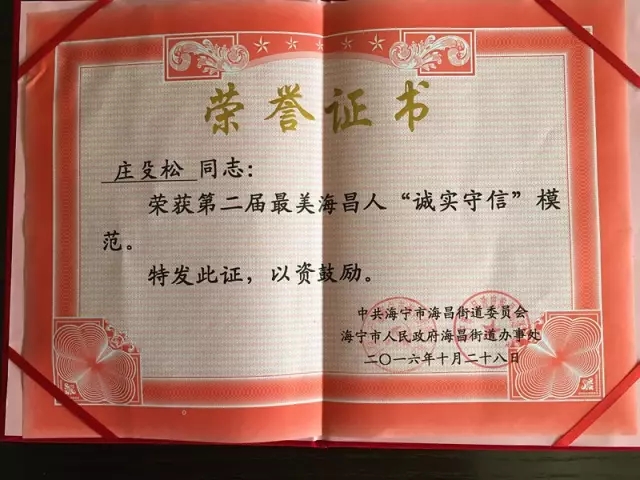 荣誉证书
庄殳松 同志：
荣获第二届最美海昌人“诚实守信”模
范。
特发此证，以资鼓励。
中共海宁市海昌街道委员会
海宁市人民政府海昌街道办事处
二〇一六年十月二十八日